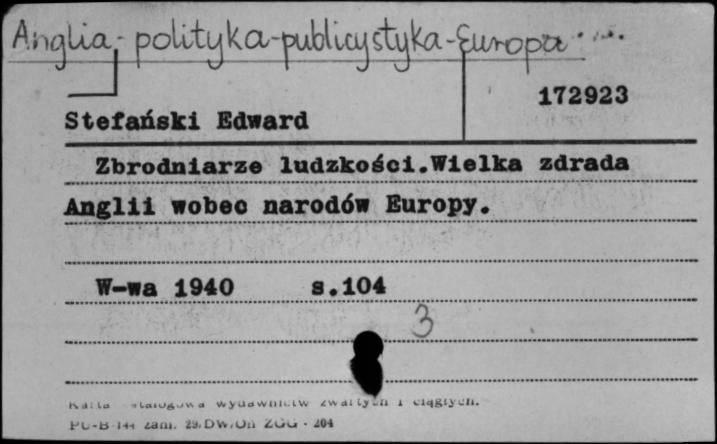 Anglia - polityka - publicystyka - Europa
172923
Stefański Edward
Zbrodniarze ludzkości.Wielka zdrada
Anglii wobec narodów Europy.
W-wa 1940 s.104
3
wydawnictw zwartych i ciągłych.
Pu-B-144 zam. ZGG - 204